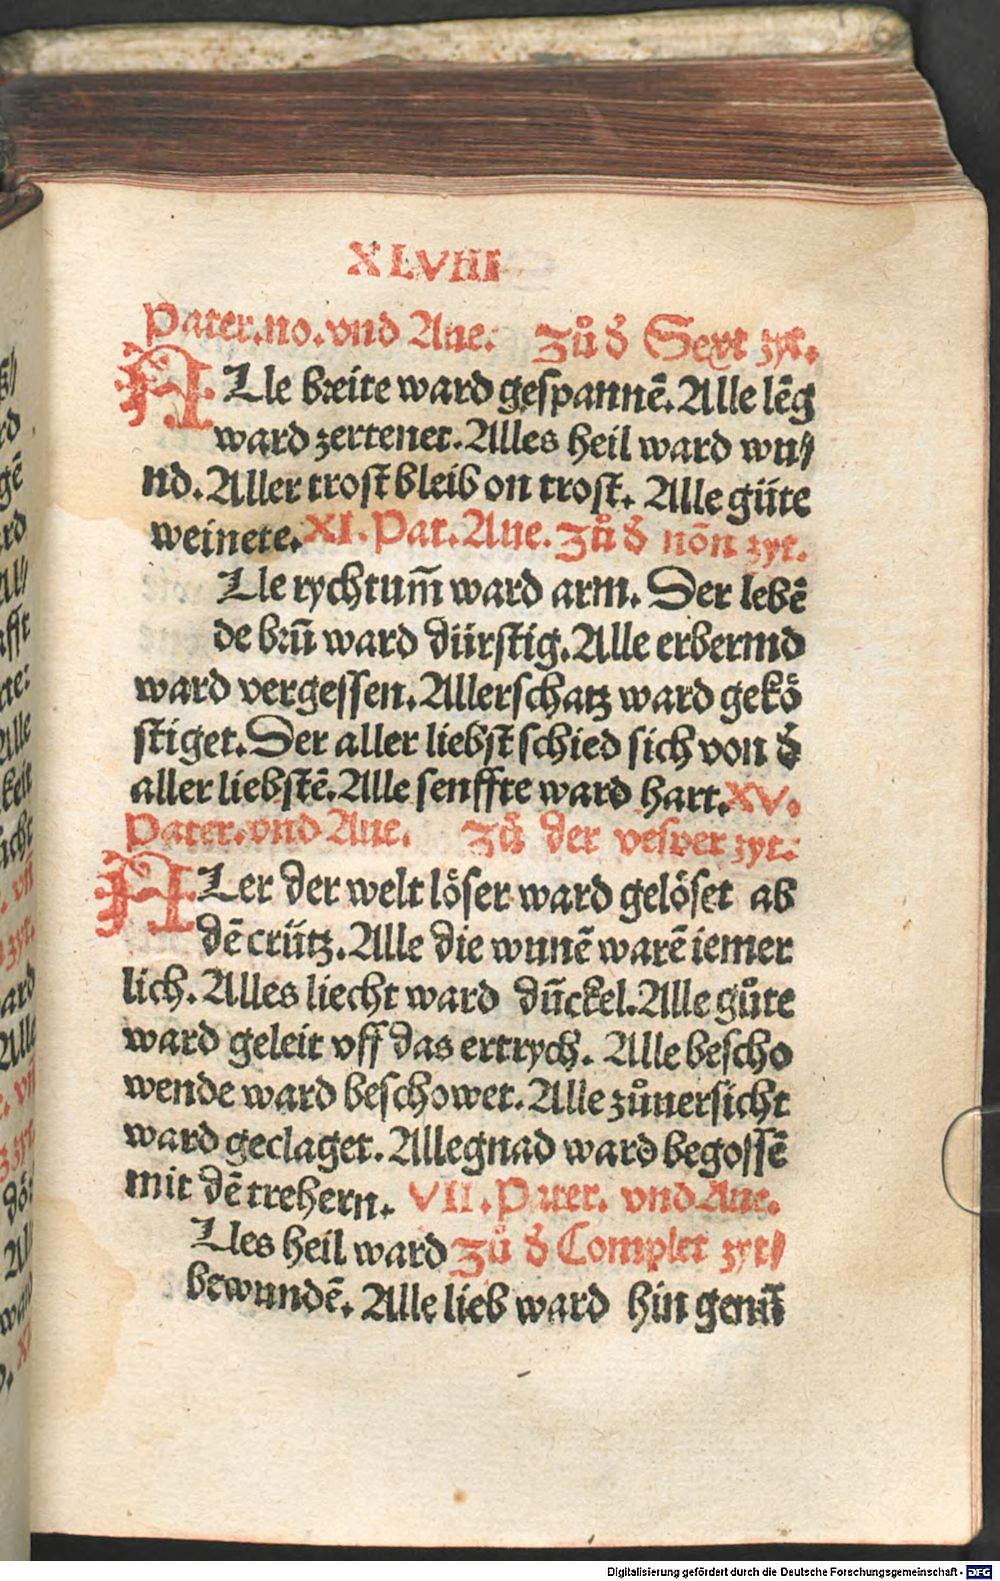 XLVIII
Pater.no.vnd Aue: Zů d̕ Sext zyt.
ALle breite ward gespannē. Alle lēg
ward zertenet. Alles heil ward wu⸗
nd. Aller trost bleib on trost. Alle güte
weinete. XI. Pat. Aue. Zů d̕ nōn zyt.
Lle rychtum̄ ward arm. Der lebē
de brū ward dürstig. Alle erbermd
ward vergessen. Allerschatz ward gekö
stiget. Der aller liebst schied sich von d̕
aller liebstē. Alle senffte ward hart. XV.
Pater. vnd Aue. Zů der vesper zyt.
ALer der welt löser ward gelöset ab
dē crütz. Alle die wunē warē iemer
lich. Alles liecht ward dūckel. Alle gůte
ward geleit vff das ertrych. Alle bescho
wende ward beschowet. Alle zůuersicht
ward geclaget. Allegnad ward begossē
mit dē trehern. VII. Pater. vnd Aue.
Lles heil ward Zů d̕ Complet zyt⸗
bewundē. Alle lieb ward hin genū
Digitalisierung gefördert durch die Deutsche Forschungsgemeinschaft - DFG